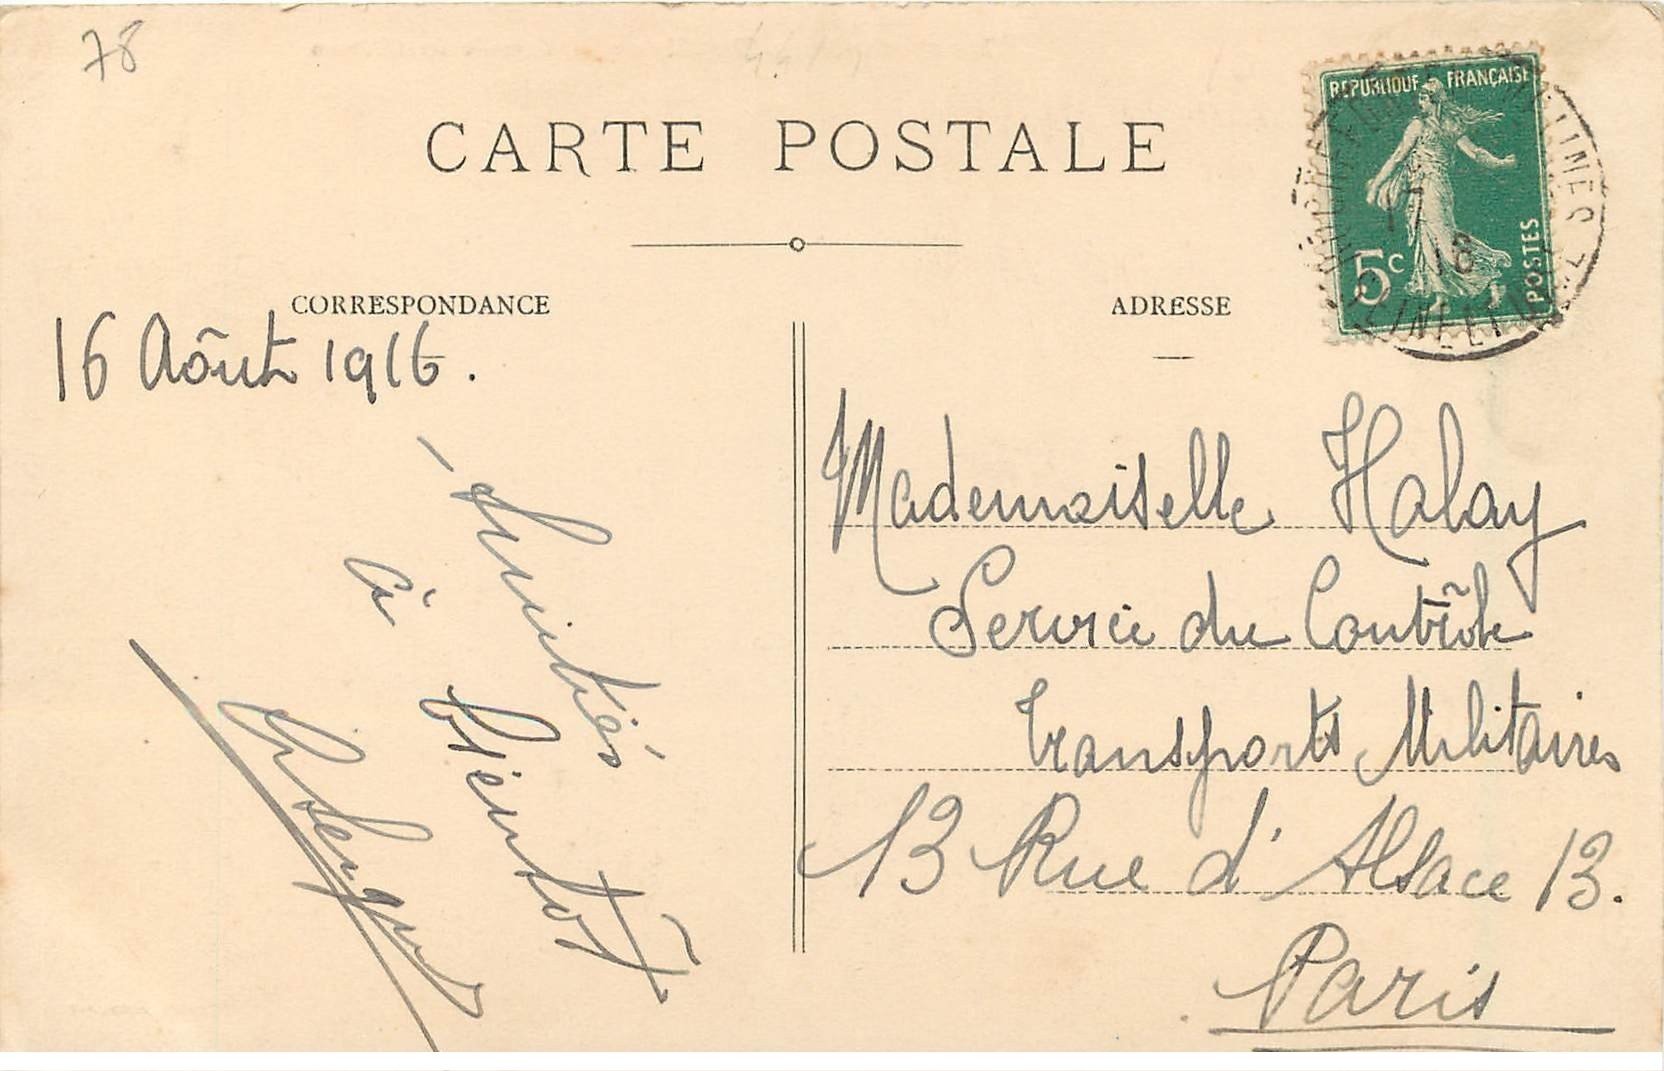 78
CARTE POSTALE
REPUBLIQUE FRANÇAISE
5c
POSTES
17
CORRESPONDANCE
ADRESSE
16 Aôut 1916.
Amitiés
à bientôt
Mademoiselle Halay
Service du Contrôle
Transports Militaires
13 Rue d'Alsace 13.
Paris